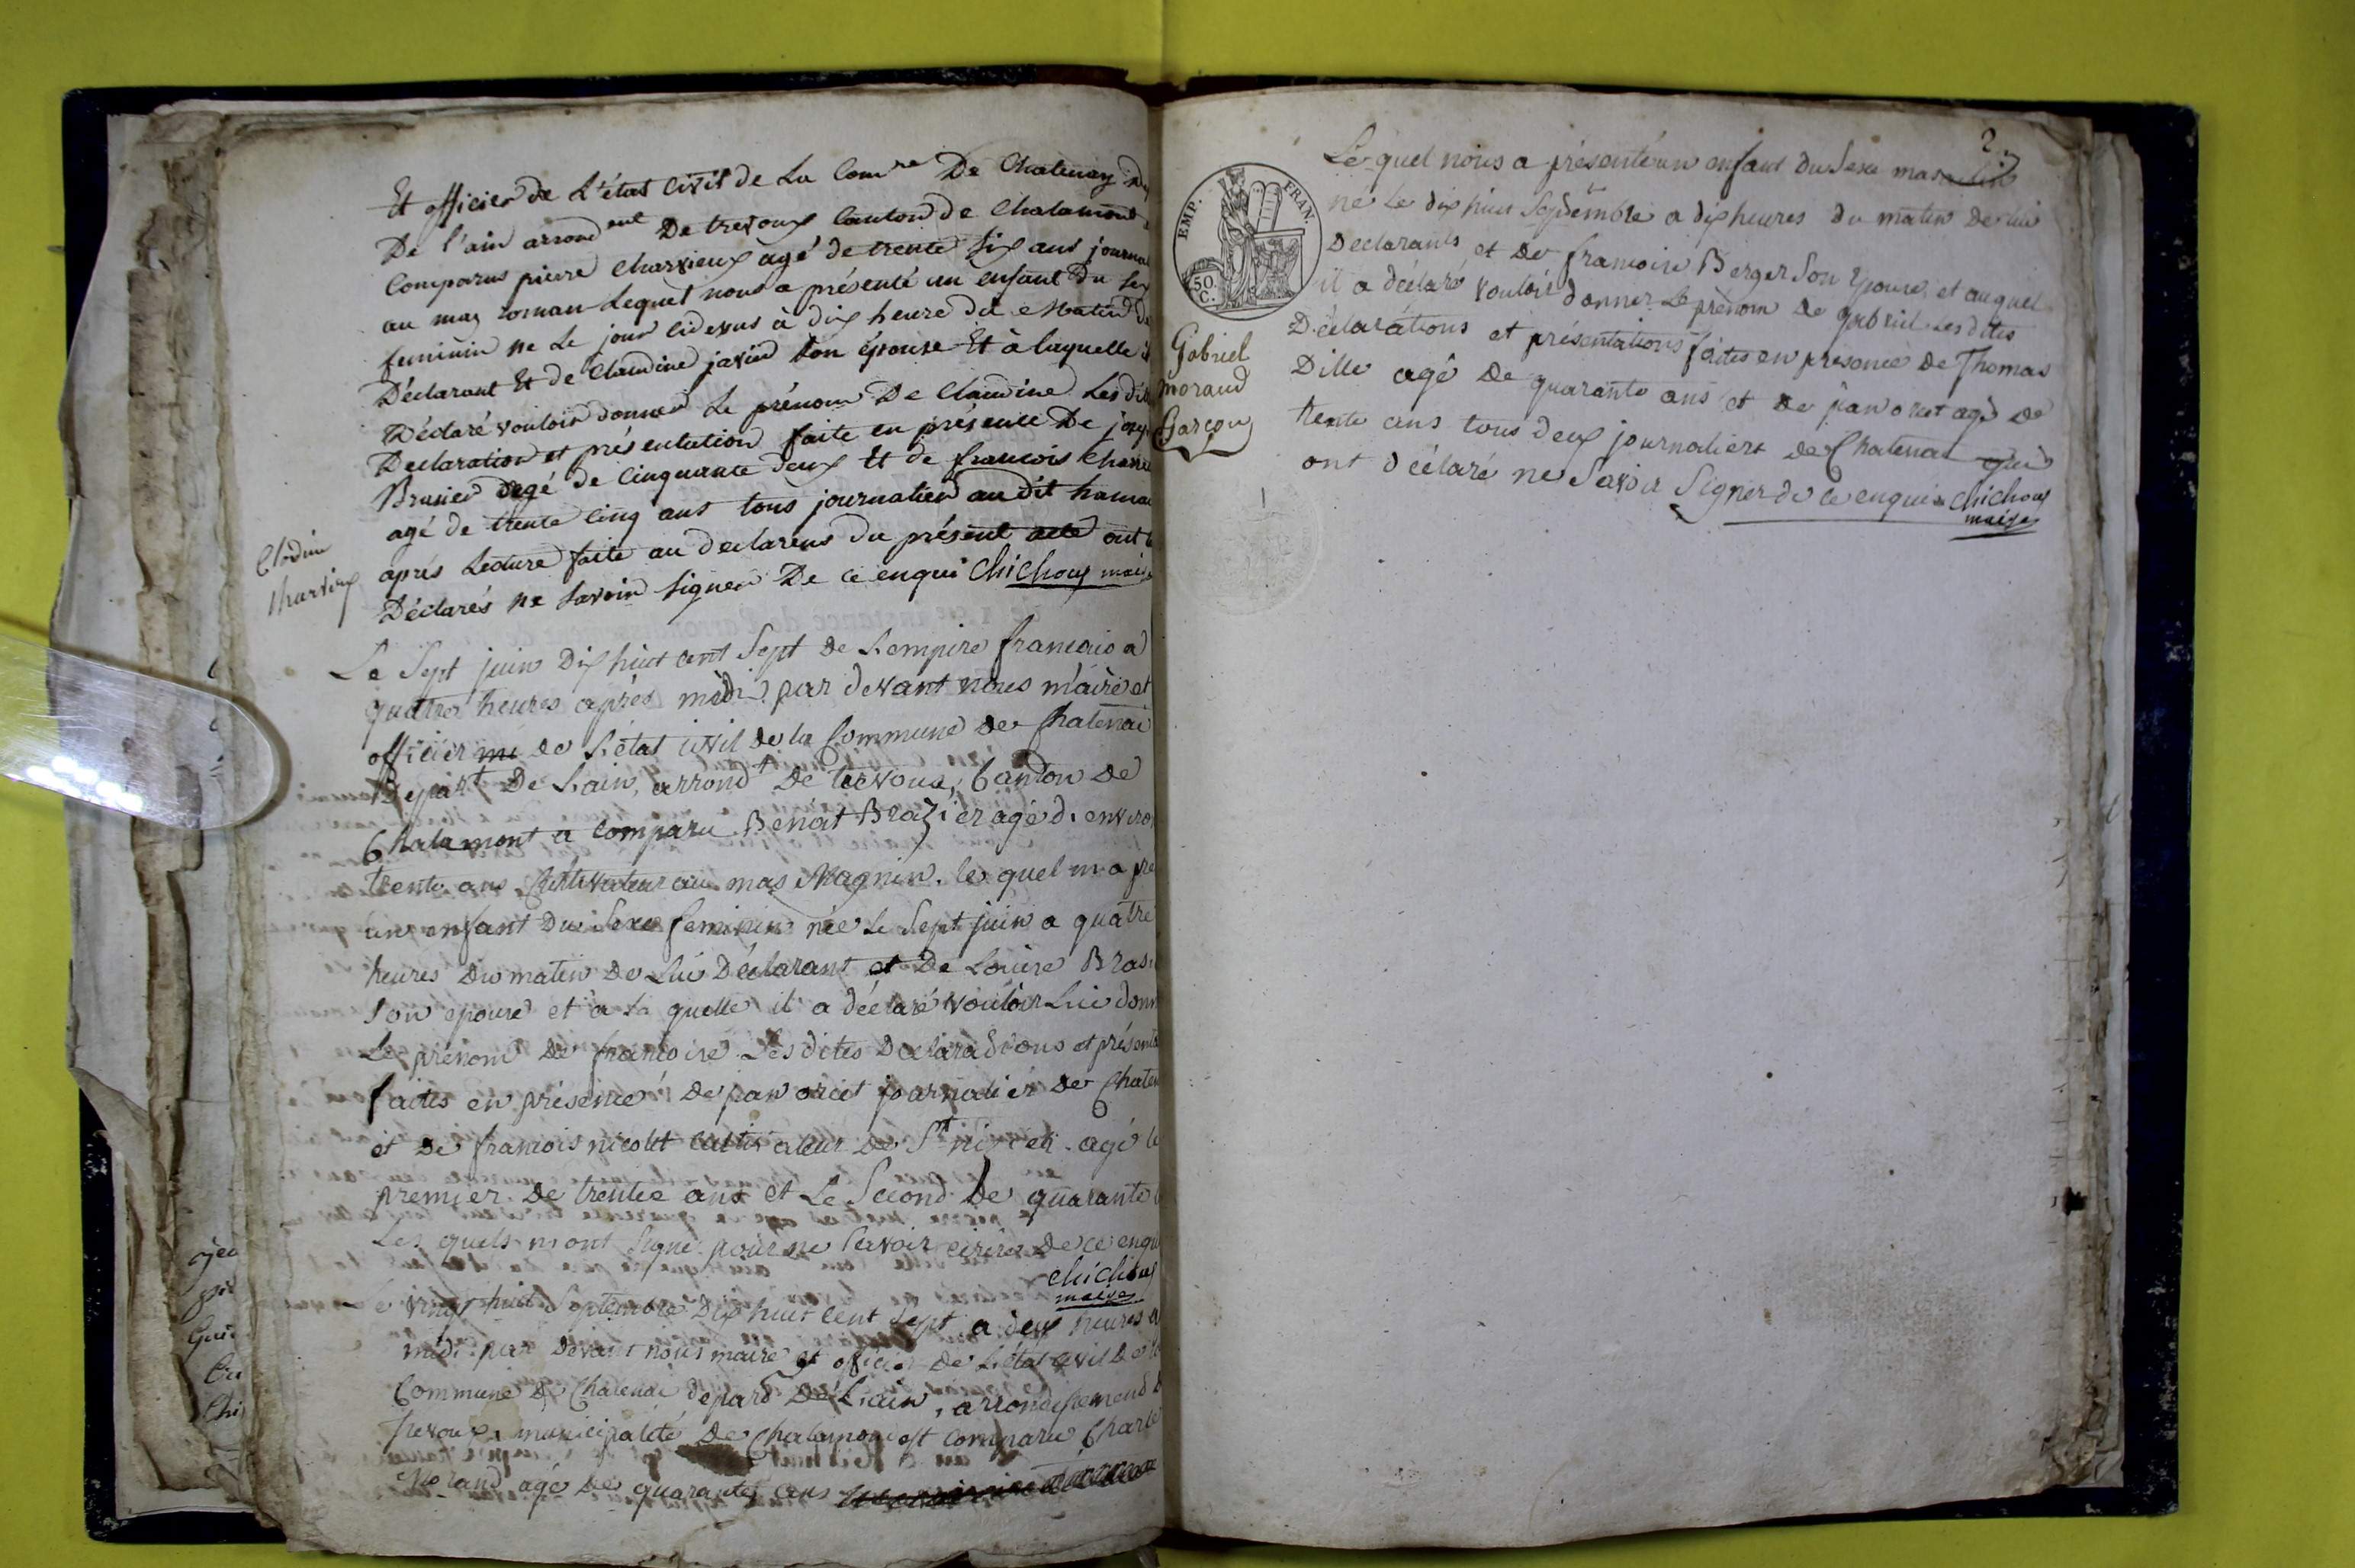 Et officier de L'état Civil de La Comre De Chatenay
De l'ain arrondment De trevoux Canton de Chalamont
Comparus pierre Charvieux agé de trente six ans journa
au mas roman Lequel nous a présenté un enfant Du sex
feminin ne Le jour cidevus à dix heure du Matin de
Déclarant Et de Claudine javin son épouse Et à laquelle il
Déclaré vouloir donner Le prénom De Claudine Les dit
Declaration et présentation faite en présence De jose
Brasier agé de Cinquante deux Et de francois Charv
agé de trente Cinq ans tous journalier au dit hamau
aprés Lecture faite au declarens du présent acte ont
Déclarés ne Savoir Signer De ce enqui Chichoux maire
Clodine
Charvieux
Le Sept juin Dix huit cent Sept de L'empire francais a
quatre heures après midi par devant nous maire et
officier me de L'état civil de la Commune de Chatenai
Depart De L'ain, arrondt De trevoux, Canton De
Chalamont a Comparu Benoit Brazier agé d'environ
trente ans Cultivateur au mas Magnin. le quel m'a pré
un enfant Du Sexe feminin née Le Sept juin a quatre
heures Du matin De Lui Déclarant et De Louise Bras
Son epouse et a la quelle il a déclaré vouloir Lui donn
Le prénom De francoise Les dites Declarations et présenta
faites en présence De jean orcet journalier De Chaten
et De francois nicolet Cultivateur De St nizier agé le
premier De trente ans et Le Second De quarante
Les quels n'ont Signé pour ne Savoir ecrire De ce enqui
Chichoux
maire
Le vingt huit Septembre Dix huit Cent Sept a deux heures a
midi par Devant nous maire et officier De L'état civil De la
Commune De Chatenai depard De L'ain, arrondissemend D
trevoux, municipalité De Chalamont est Comparu Charle
Morand agé De quarante ans
2
EMP. FRAN.
50
C.
Le quel nous a présenté un enfant Du Sexe masculin
né Le dix huit Septembre a dix heures du matin De lui
Declarants et De francoise Berger Son Epouse, et auquel
il a déclaré vouloir donner Le prénom De gabriel Les dites
Déclarations et présentations faites en presence De Thomas
Dille agé De quarante ans et De jean orcet agé De
trente ans tous deux journaliers De Chatenai qui
ont déclaré ne Savoir Signer de ce enquis Chichoux
maire
Gabriel
morand
Garçon